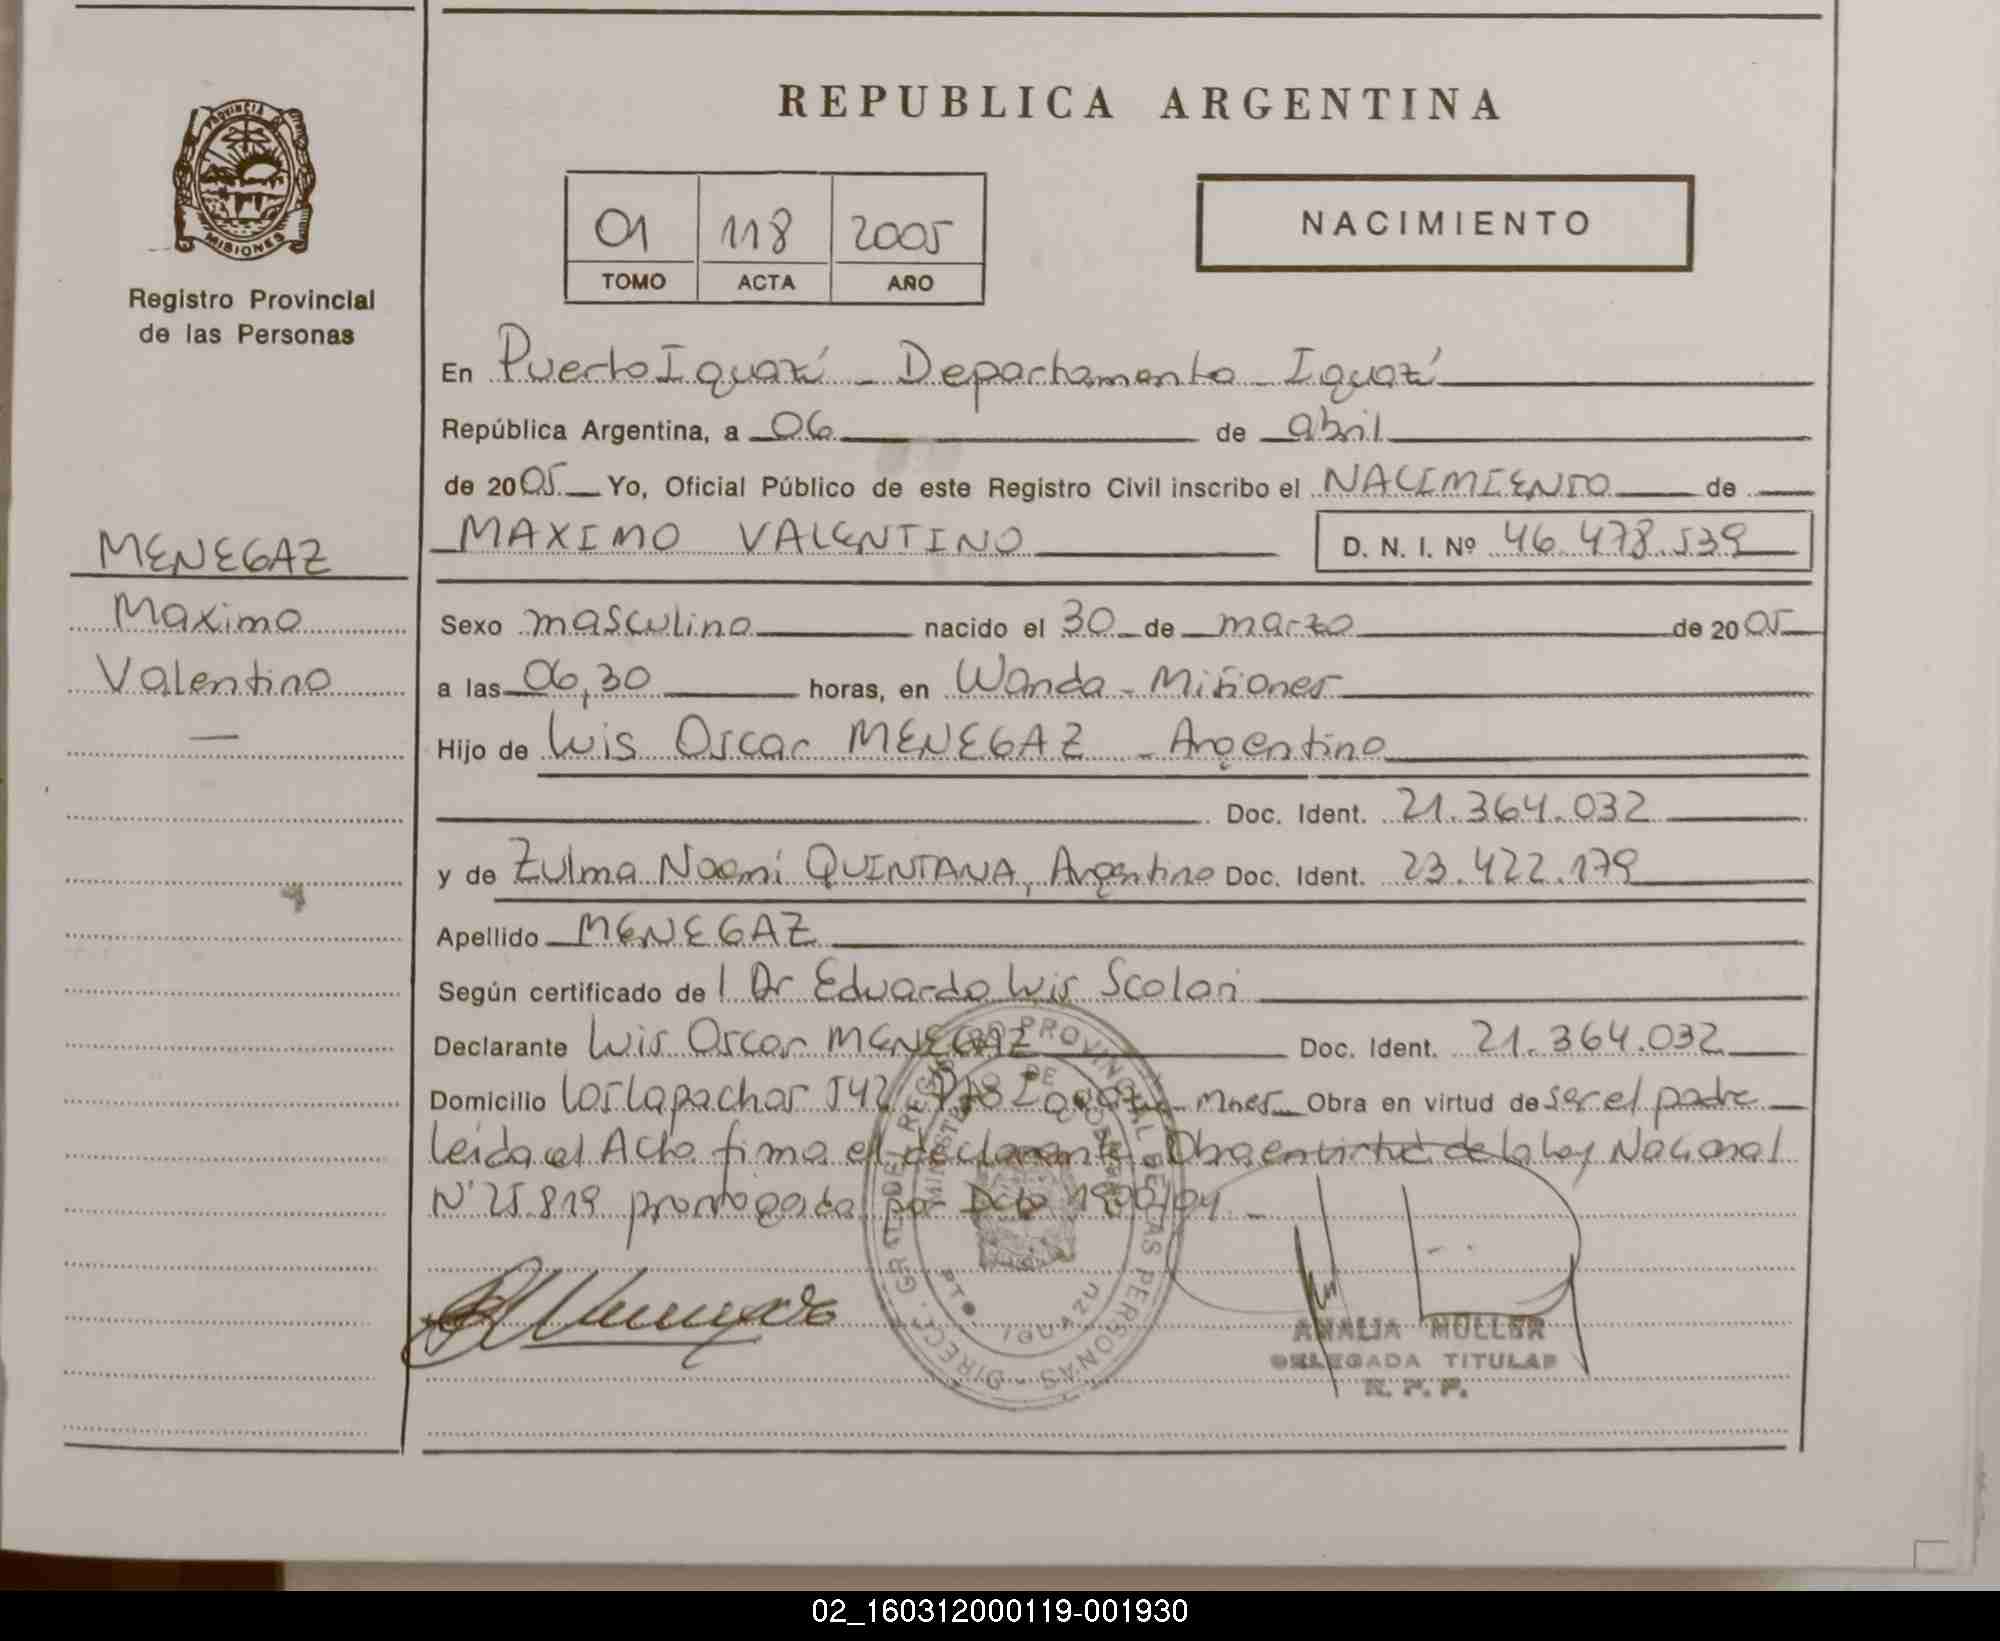 REPUBLICA ARGENTINA
PROVINCIA DE
MISIONES
Registro Provincial
de las Personas
01 118 2005
TOMO ACTA AÑO
NACIMIENTO
En Puerto Iguazú - Departamento Iguazú
República Argentina, a 06 de abril
de 2005 Yo, Oficial Público de este Registro Civil inscribo el NACIMIENTO de
MAXIMO VALENTINO D. N. I. Nº 46.478.539
MENEGAZ
Maximo
Valentino
Sexo masculino nacido el 30 de marzo de 2005
a las 06,30 horas, en Wanda - Misiones
Hijo de Luis Oscar MENEGAZ - Argentino
Doc. Ident. 21.364.032
y de Zulma Noemí QUINTANA, Argentina Doc. Ident. 23.422.179
Apellido MENEGAZ
Según certificado de l Dr Eduardo Luis Scolari
Declarante Luis Oscar MENEGAZ Doc. Ident. 21.364.032
Domicilio Los Lapachos 542 Pto Iguazú - Mnes Obra en virtud de ser el padre
Leída el Acta firma el declarante Obra en virtud de la Ley Nacional
Nº 25.819 prorrogada por Dcto 1900/04 -
DIRECC. GRAL. DEL REGISTRO PROVINCIAL DE LAS PERSONAS
MINISTERIO DE GOBIERNO
PTO. IGUAZU
ANALIA MULLER
DELEGADA TITULAR
R. P. P.
02_160312000119-001930